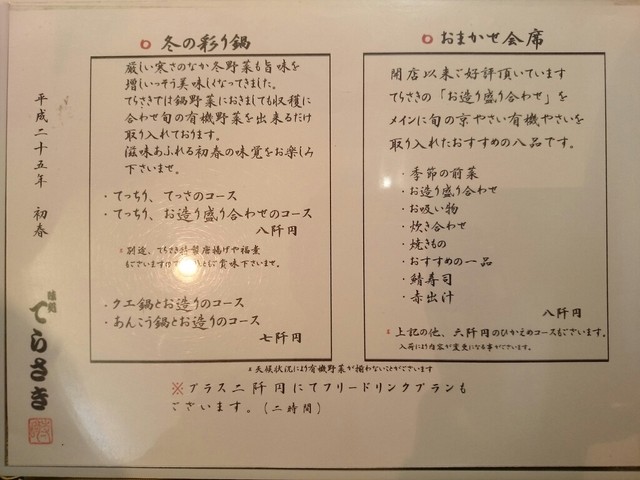 平成二十五年 初春
味処 てらさき
冬の彩り鍋
厳しい寒さのなか冬野菜も旨味を
増しいっそう美味しくなってきました。
てらさきでは鍋野菜におきましても収穫に
合わせ旬の有機野菜を出来るだけ
取り入れております。
滋味あふれる初春の味覚をお楽しみ
下さいませ。
・てっちり、てっさのコース
・てっちり、お造り盛り合わせのコース
八阡円
※別途、てらさき特製唐揚げや福壷
もございますので 賞味下さいませ。
・クエ鍋とお造りのコース
・あんこう鍋とお造りのコース
七阡円
おまかせ会席
開店以来ご好評頂いています
てらさきの「お造り盛り合わせ」を
メインに旬の京やさい有機やさいを
取り入れたおすすめの八品です。
・季節の前菜
・お造り盛り合わせ
・お吸い物
・炊き合わせ
・焼きもの
・おすすめの一品
・鯖寿司
・赤出汁
八阡円
※上記の他、六阡円のひかえめコースもございます。
入荷により内容が変更になる事がございます。
※天候状況により有機野菜が揃わないことがございます
※プラス二阡円にてフリードリンクプランも
ございます。(二時間)